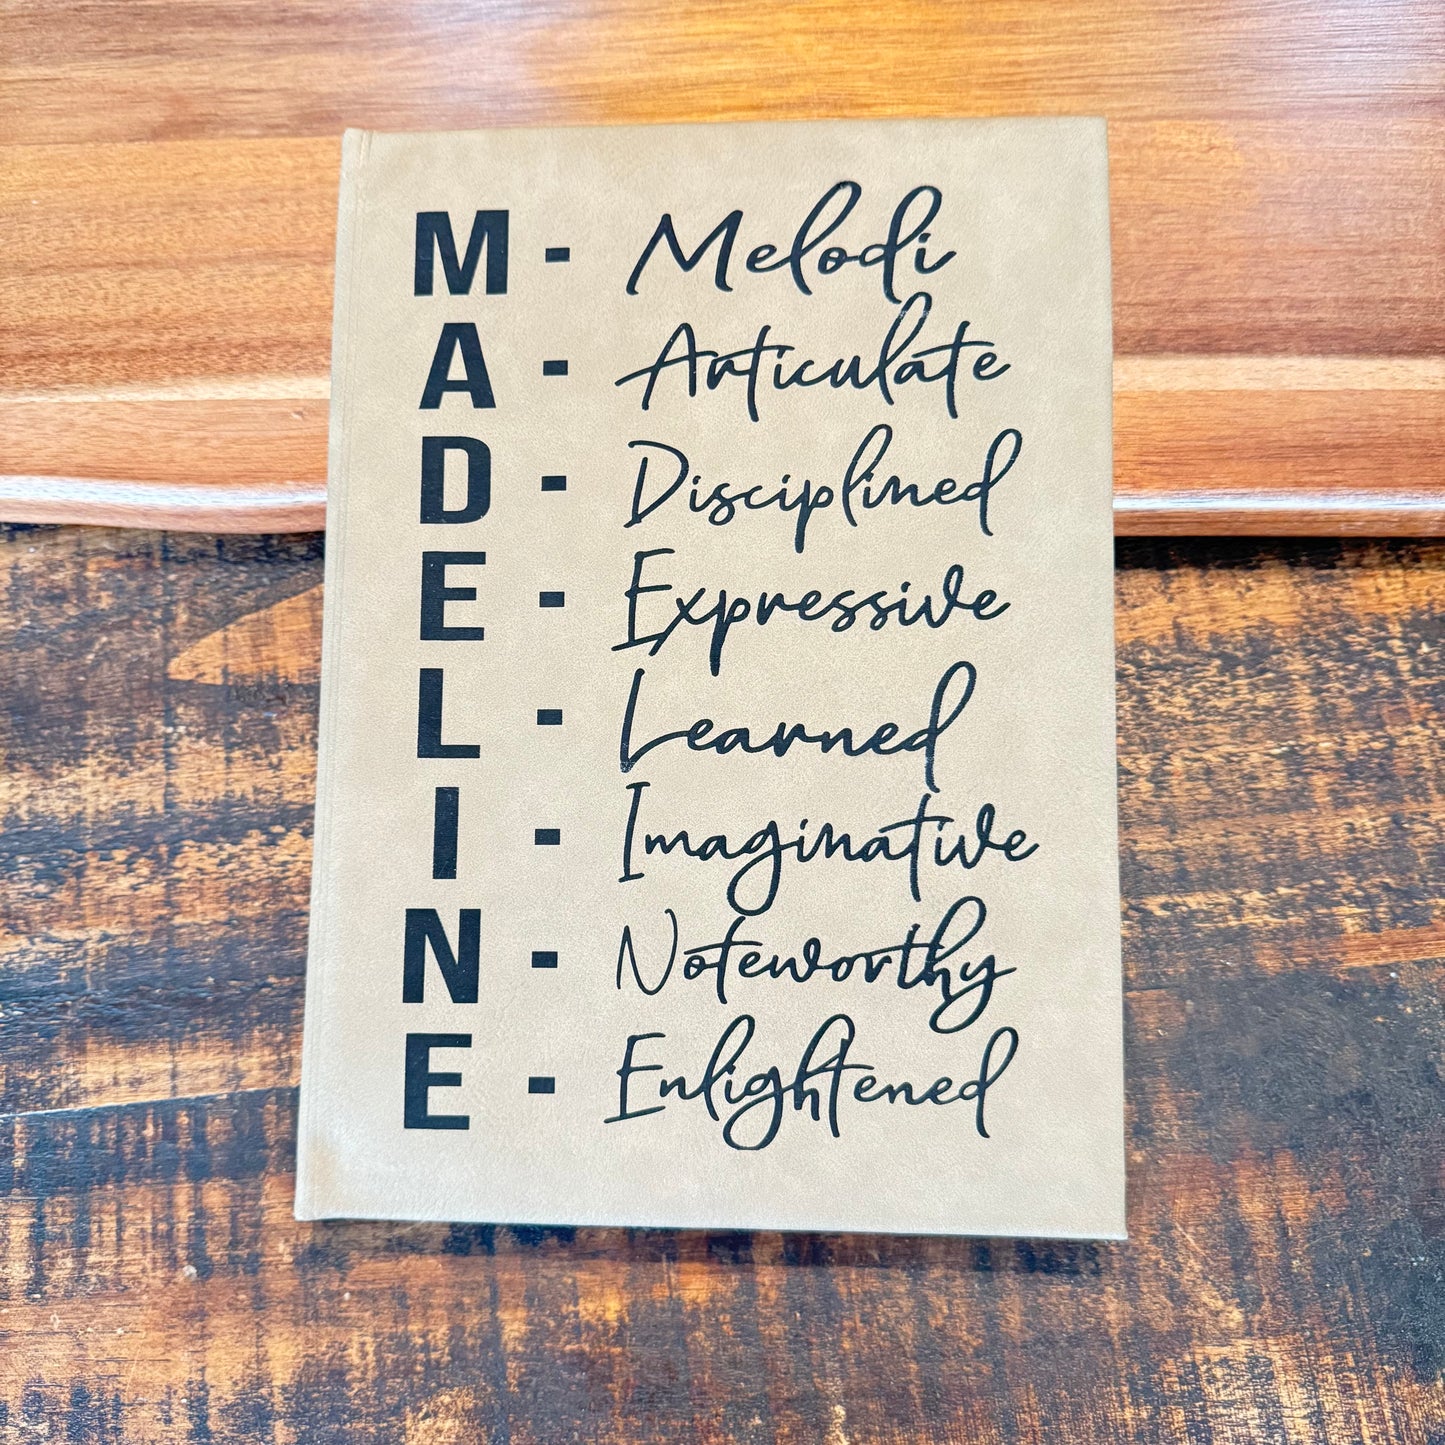 M - Melodi
A - Articulate
D - Disciplined
E - Expressive
L - Learned
I - Imaginative
N - Noteworthy
E - Enlightened